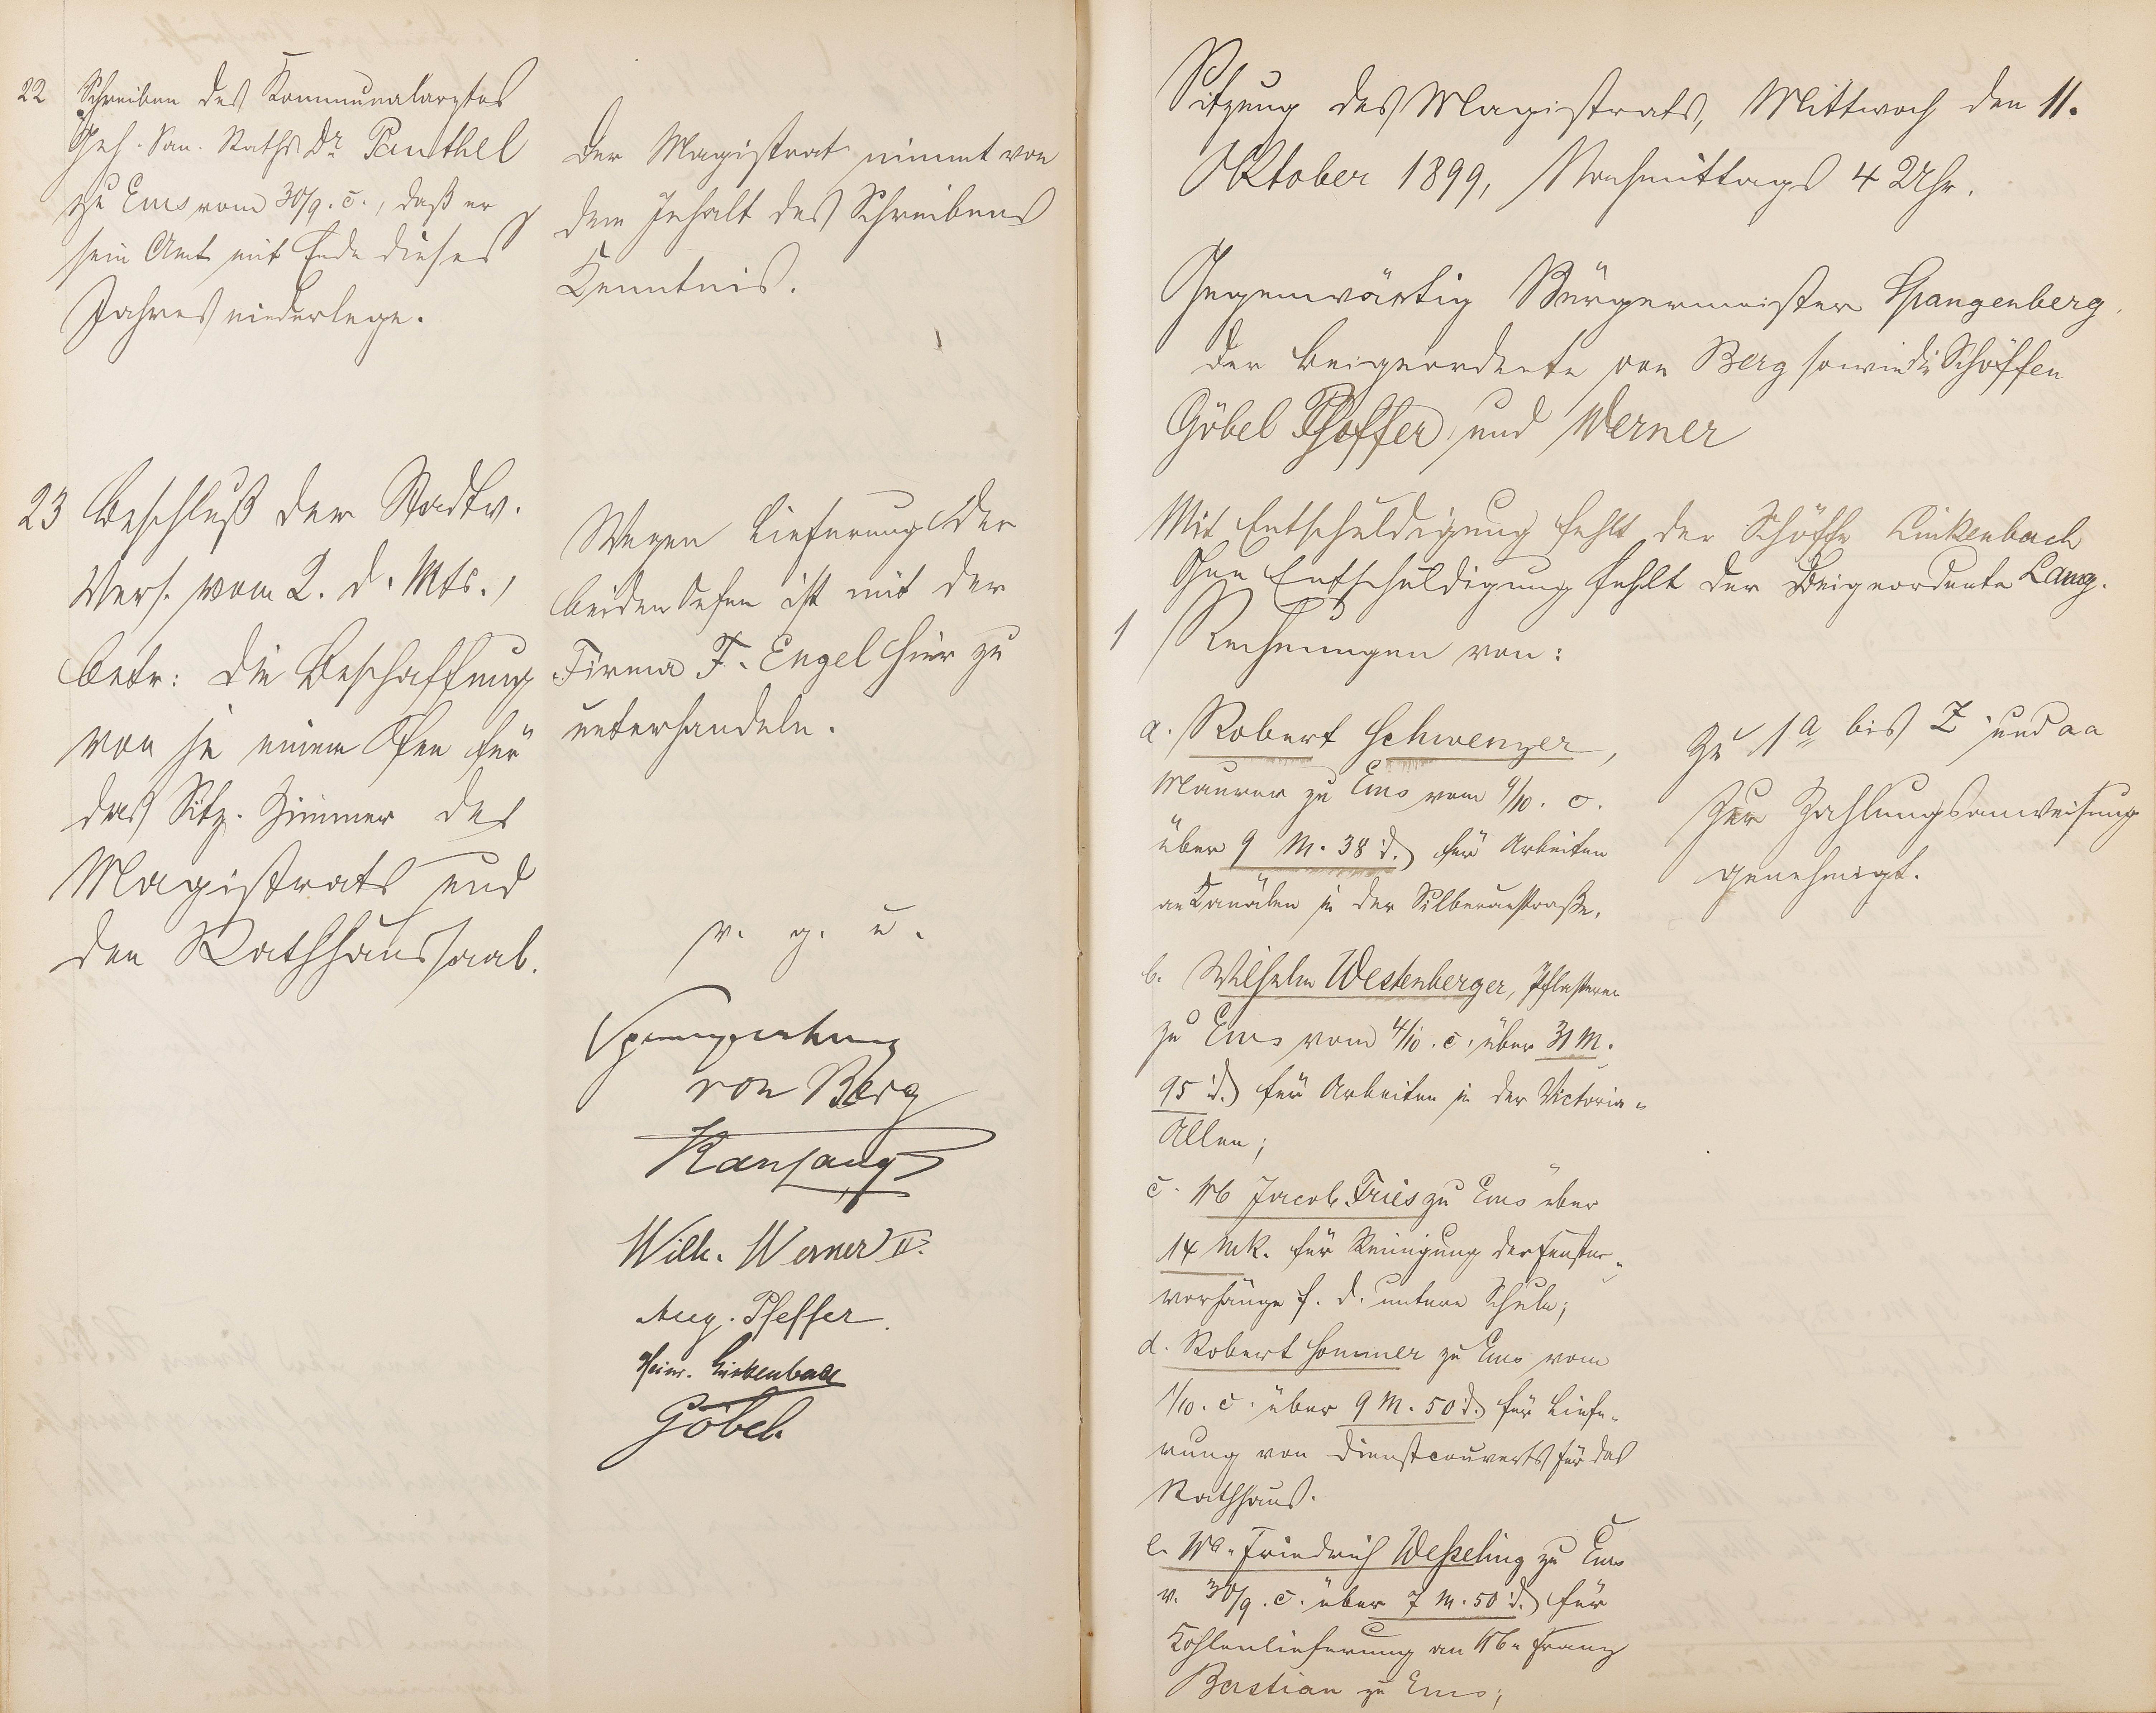 22 Schreiben des Kommunalarztes
Geh. San. Raths Dr. Panthel
zu Ems vom 30/9. c., daß er
sein Amt mit Ende dieses
Jahres niederlege.
Der Magistrat nimmt von
dem Inhalt des Schreibens
Kenntnis.
23 Beschluß der Stadtv.
Vers. vom 2. d. Mts.,
betr: die Beschaffung
von je einem Ofen für
das Sitz. Zimmer des
Magistrats und
den Rathhaussaal.
Wegen Lieferung der
beiden Oefen ist mit der
Firma F. Engel hier zu
unterhandeln.
v. g. u.
Spangenberg
von Berg
Wilh. Werner II.
Aug. Pfeffer.
Heinr. Linkenbach
Göbel.
Sitzung des Magistrats, Mittwoch den 11.
Oktober 1899, Nachmittags 4 Uhr.
Gegenwärtig Bürgermeister Spangenberg,
der Beigeordnete von Berg sowie die Schöffen
Göbel Pfeffer und Werner
Mit Entschuldigung fehlt der Schöffe Linkenbach
Ohne Entschuldigung fehlt der Beigeordnete Lang.
1 Rechnungen von:
a. Robert Schwenzer,
Maurer zu Ems vom 9/10. c.
über 9 M. 38 d. für Arbeiten
an Kanälen in der Silberaustraße.
Zu 1a bis Z und aa
Zur Zahlungsanweisung
genehmigt.
b. Wilhelm Westenberger, Pflasterer
zu Ems vom 4/10. c. über 31 M.
95 d. für Arbeiten in der Victoria-
Allee;
c. Wb Jacob Fries zu Ems über
14 Mk. für Reinigung der Fenster-
vorhänge f. d. untere Schule;
d. Robert Sommer zu Ems vom
1/10. c. über 9 M. 50 d. für Liefe-
rung von Dienstcouverts für das
Rathhaus.
e. Wb. Friedrich Weßeling zu Ems
v. 30/9. c. über 7 M. 50 d. für
Kohlenlieferung an Wb. Franz
Bastian zu Ems;